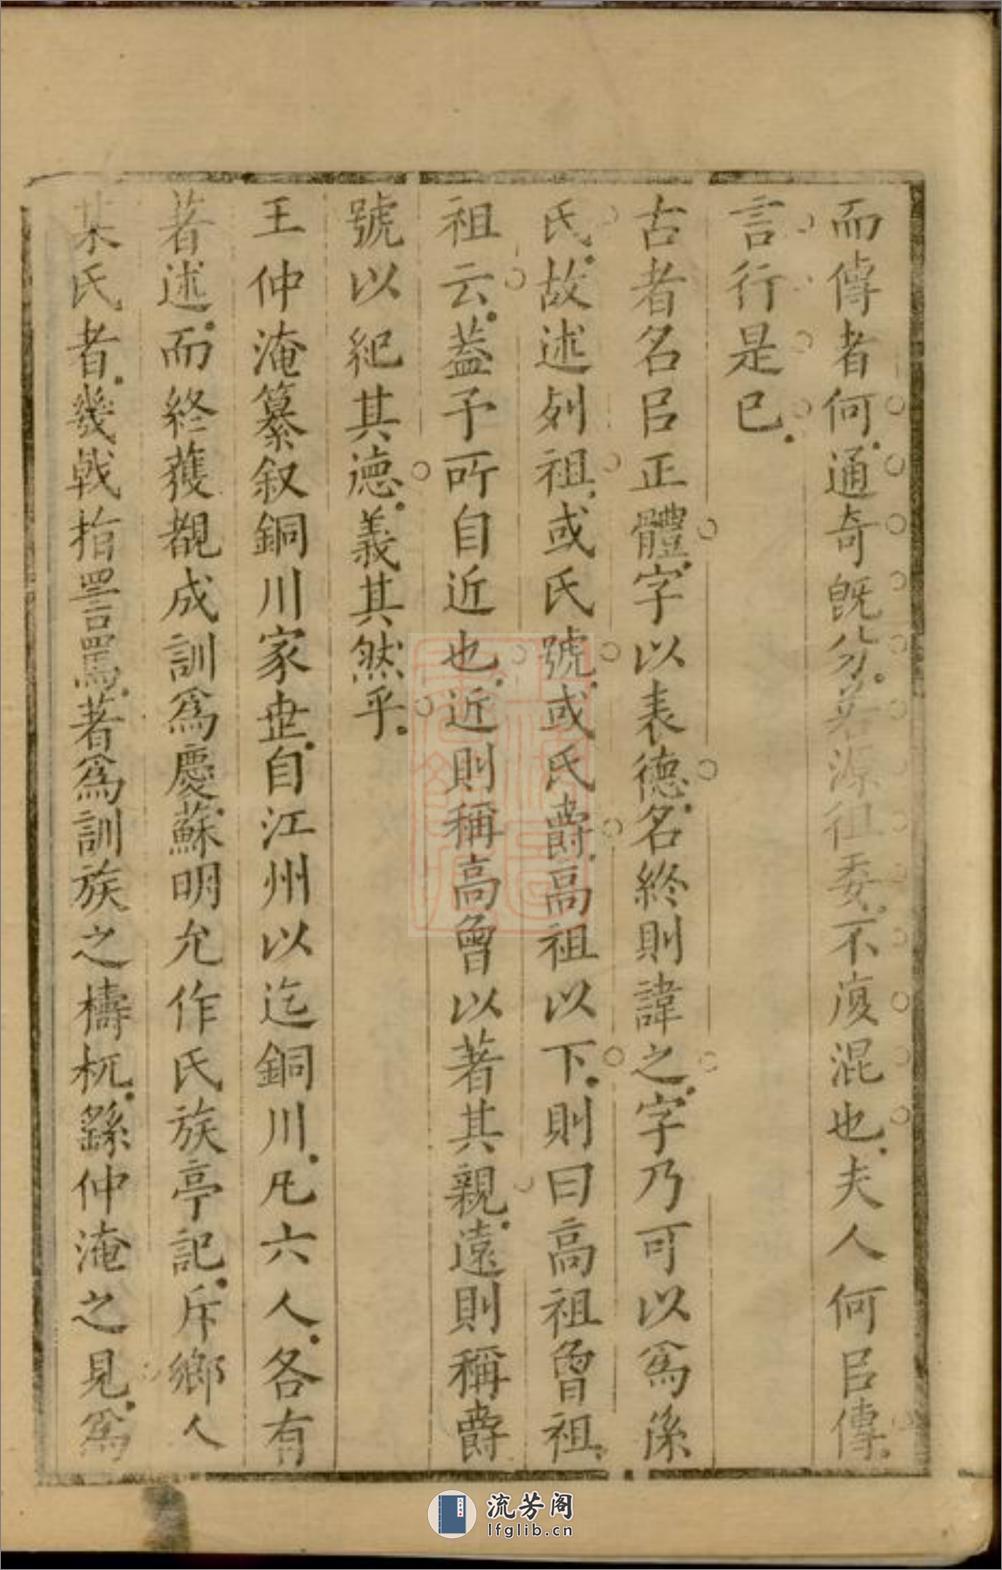 而傳者何通奇旣分若源徂委不復混也夫人何㠯傳
言行是已
古者名㠯正體字以表德名終則諱之字乃可以爲孫
氏故述列祖或氏號或氏爵高祖以下則曰高祖曾祖
祖云葢予所自近也近則稱高曾以著其親遠則稱爵
號以紀其德義其然乎
王仲淹纂叙銅川家世自江州以迄銅川凡六人各有
著述而終獲覩成訓爲慶蘇明允作氏族亭記斥鄉人
某氏者幾戟指詈罵著爲訓族之檮杌繇仲淹之見爲
流芳阁
lfglib.cn